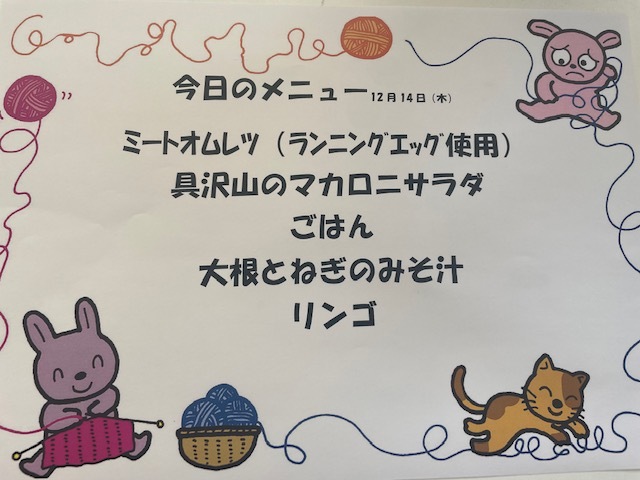 今日のメニュー12月14日(木)
ミートオムレツ(ランニングエッグ使用)
具沢山のマカロニサラダ
ごはん
大根とねぎのみそ汁
リンゴ